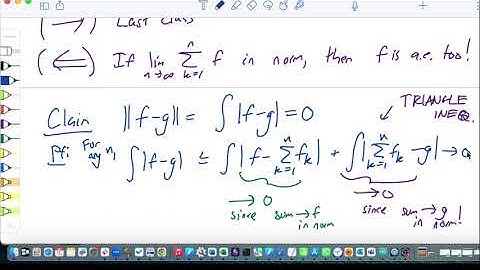 (→) Last Class
(⟸) If lim n→∞ Σ k=1 n f in norm, then f is a.e. too!
Claim ‖f-g‖ = ∫|f-g| = 0
TRIANGLE INEQ.
Pf: For any n, ∫|f-g| ≤ ∫|f - Σ k=1 n fk| + ∫|Σ k=1 n fk - g| → 0
→ 0 → 0
since sum → f in norm since sum → g in norm!